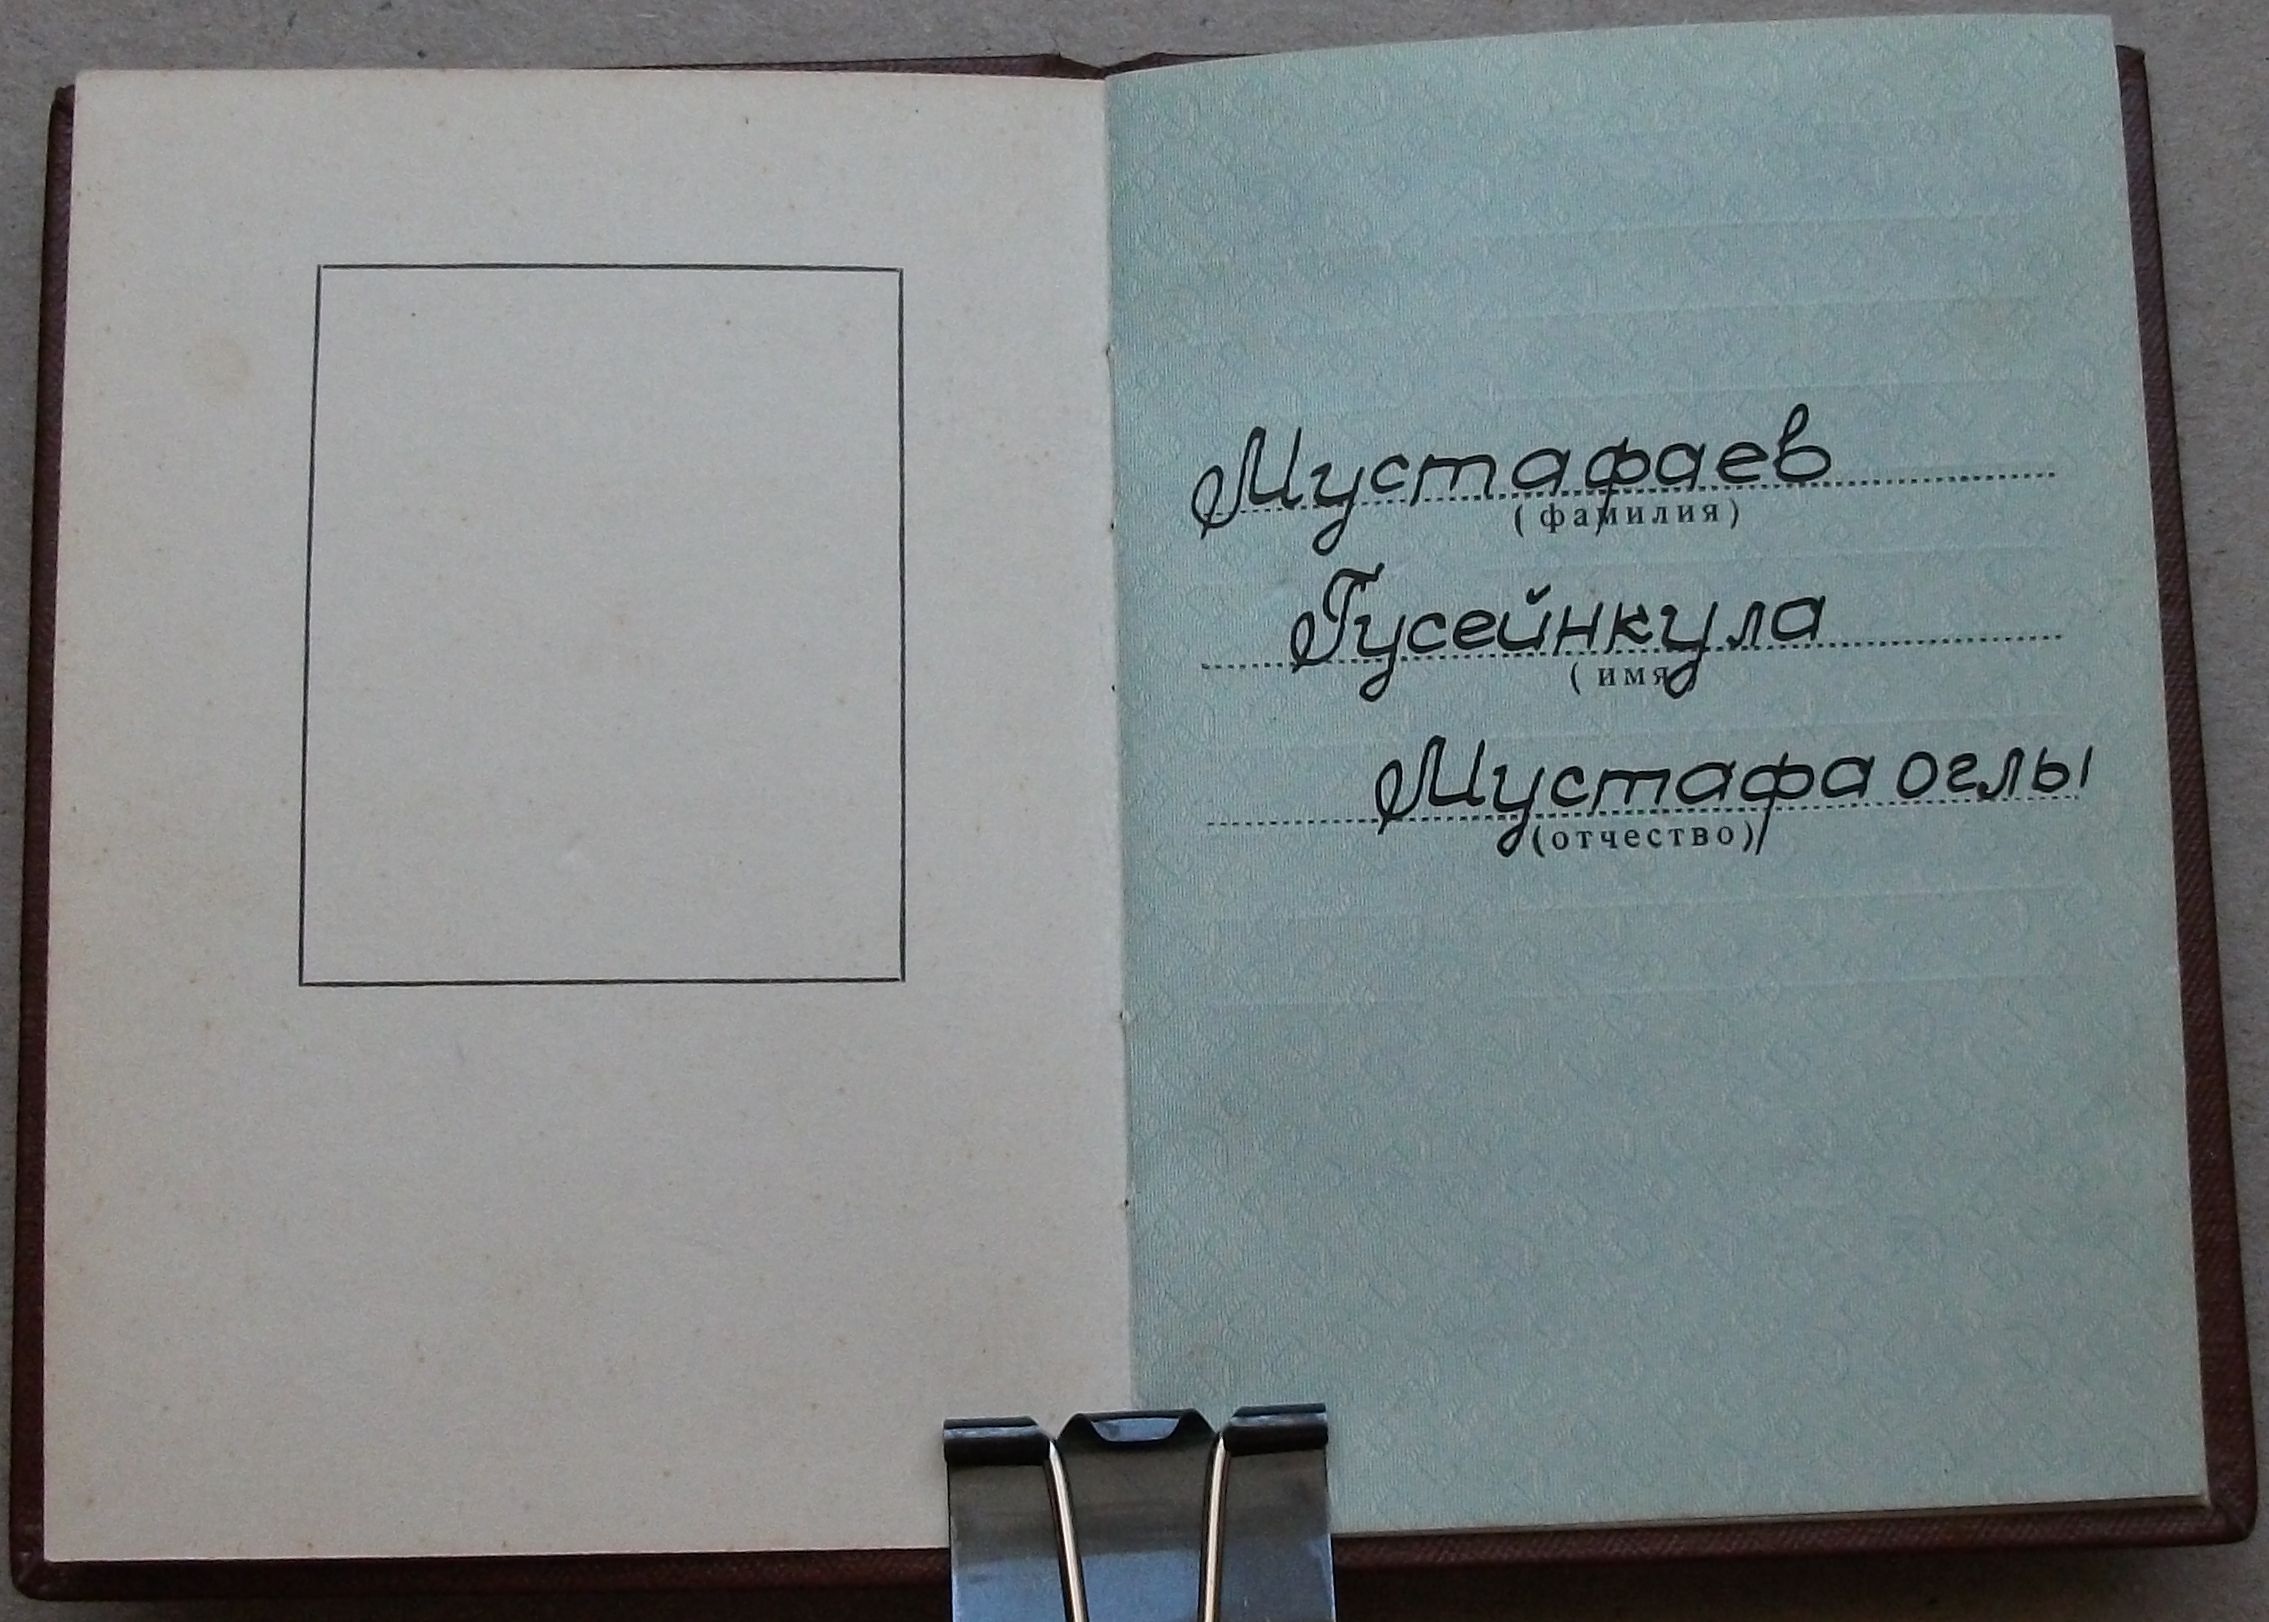 Мустафаев
(фамилия)
Гусейнкула
(имя)
Мустафа оглы
(отчество)